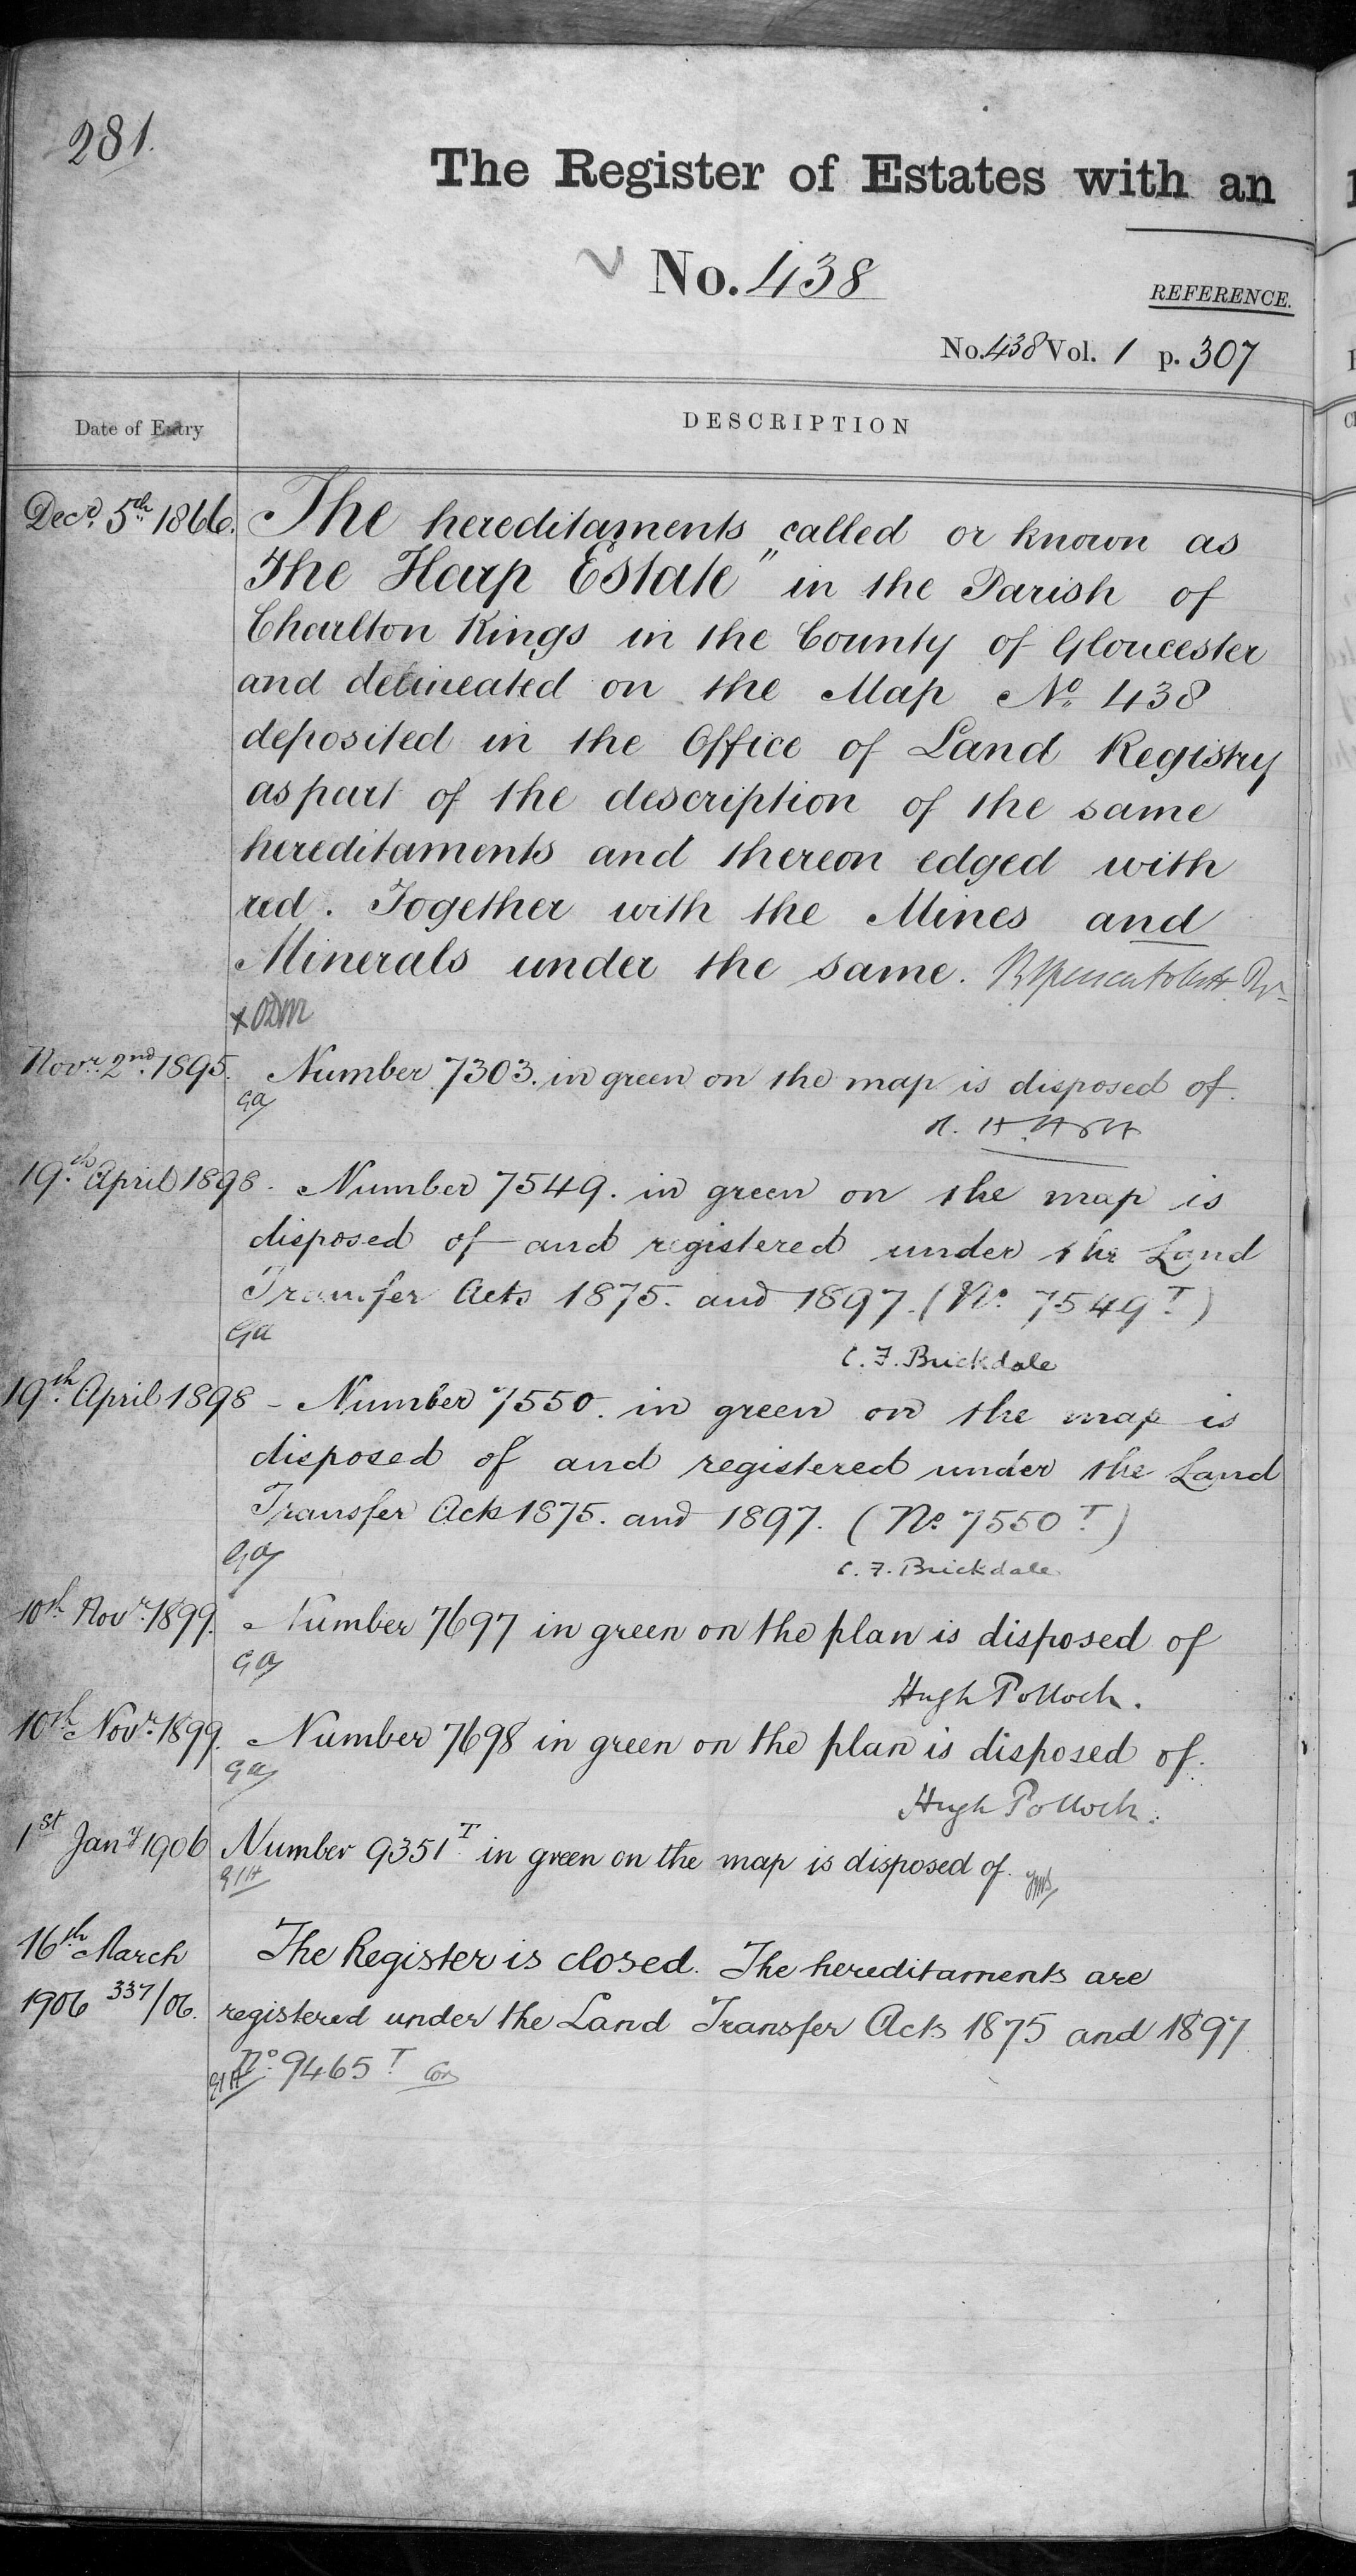 281.
The Register of Estates with an
No. 438
REFERENCE.
No. 438 Vol. 1 p. 307
Date of Entry
DESCRIPTION
Decr. 5th 1866. The hereditaments called or known as
"The Harp Estate" in the Parish of
Charlton Kings in the County of Gloucester
and delineated on the Map No. 438
deposited in the Office of Land Registry
as part of the description of the same
hereditaments and thereon edged with
red. Together with the Mines and
Minerals under the same.
Novr. 2nd. 1895. Number 7303. in green on the map is disposed of.
Ga
19.th April 1898. Number 7549. in green on the map is
disposed of and registered under the Land
Transfer Acts 1875. and 1897. (No. 7549 T)
Ga
C. F. Brickdale
19.th April 1898 - Number 7550. in green on the map is
disposed of and registered under the Land
Transfer Acts 1875. and 1897. (No. 7550 T)
Ga
C. F. Brickdale
10th Novr. 1899. Number 7697 in green on the plan is disposed of
Ga
Hugh Pollock.
10th Novr. 1899. Number 7698 in green on the plan is disposed of.
Ga
Hugh Pollock.
1st Jany 1906 Number 9351 T in green on the map is disposed of.
16th March The Register is closed. The hereditaments are
1906 337/06. registered under the Land Transfer Acts 1875 and 1897
No. 9465 T